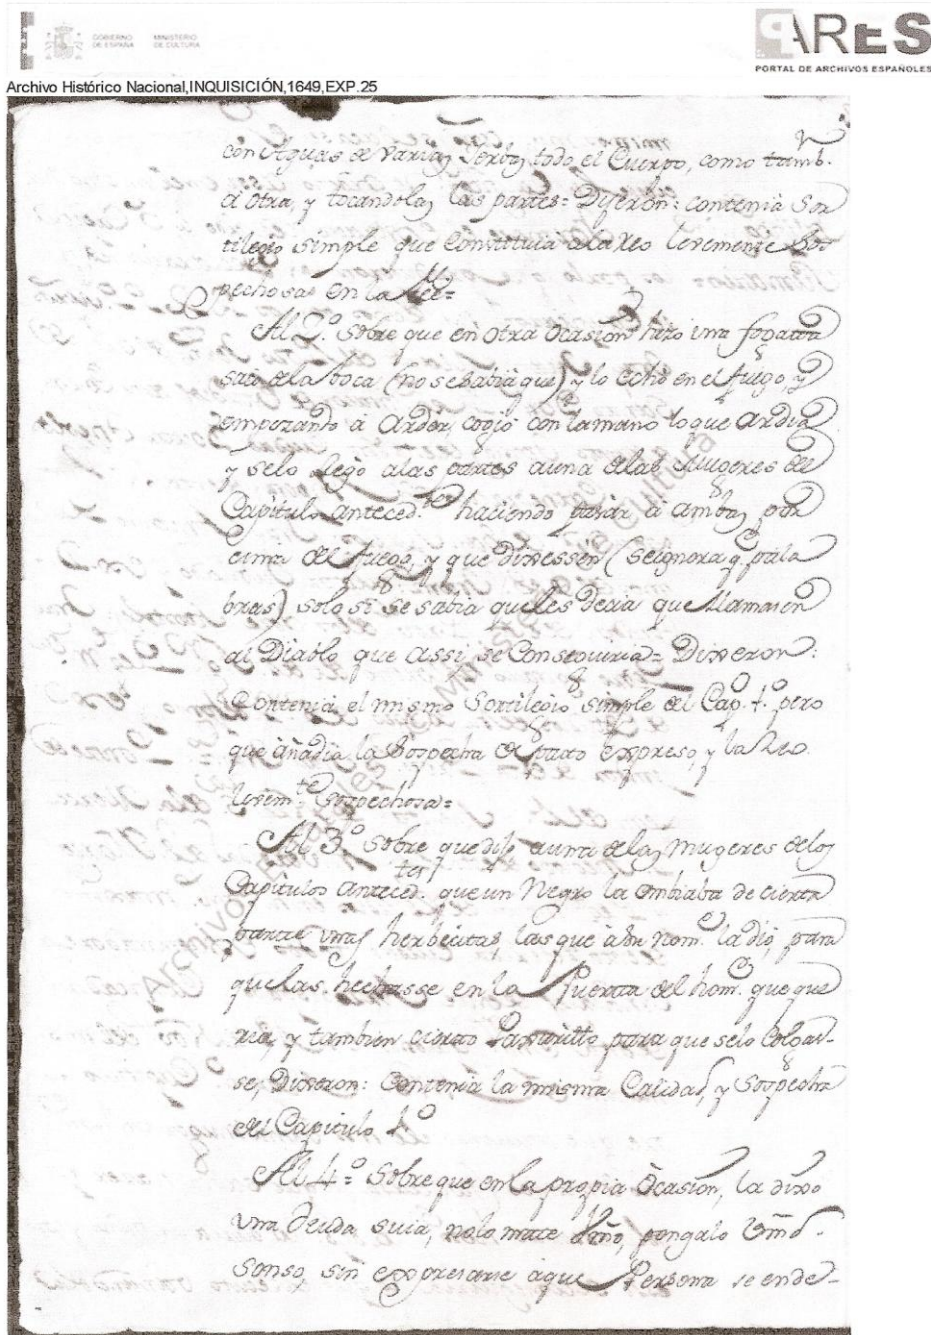 GOBIERNO DE ESPAÑA
MINISTERIO DE CULTURA
PARES
PORTAL DE ARCHIVOS ESPAÑOLES
Archivo Histórico Nacional,INQUISICIÓN,1649,EXP.25
con Aguas de varias Yerbas todo el Cuerpo, como tamb.n
a otra, y tocandolas las partes= Dijeron: contenia Sor
tilegio simple que Constituia a la Reo levemente Sos
pechosas en la Fee=
Al 2.º Sobre que en otra Ocasion hizo una fogata
saco de la boca (no se sabia que) y lo echó en el fuego, y
empezando á Arder, cogió con la mano lo que Ardia
y selo a las partes a una de las Mugeres del
Capitulo anteced.te haciendo pasar á ambas por
cima del fuego, y que Dixessen (se ignora q. pala
bras) solo si se sabia que les decia que llamasen
al Diablo que assi se Conseguiria= Dixeron:
Contenia el mismo Sortilegio simple del Cap. 1.º pero
que añadia la Sospecha de pacto expreso, y la Reo
levem.te Sospechosa=
Al 3.º Sobre que dijo a una de las Mugeres de los
Capitulos anteced.tes que un Negro la embiaba de cierta
parte unas herbecitas, las que á su nom.e la dió, para
que las hechasse en la Puerta del hom.e que que
ria, y tambien cierto para que selo Colgas-
se, Dixeron: Contenia la misma Calidad, y Sospecha
del Capitulo 1.º
Al 4.º Sobre que en la propia Ocasion, la dixo
una deuda suia, no lo mate pongalo Vmd.
Sonso, sin expresarse a que Persona se ende-
Archivos Estatales, Ministerio de Cultura